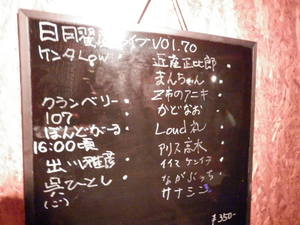 日月曜夜ライブ VOL.70
ケンタLow
クランベリー
107
ぽんどがーる
16:00頃
出川雅彦
呉ひとし
近産正比郎
まんちゃん
Z市のアニキ
かどなお
Loud礼
アリス高水
イイマケンイチ
ながぶっち
サナシン
¥350-